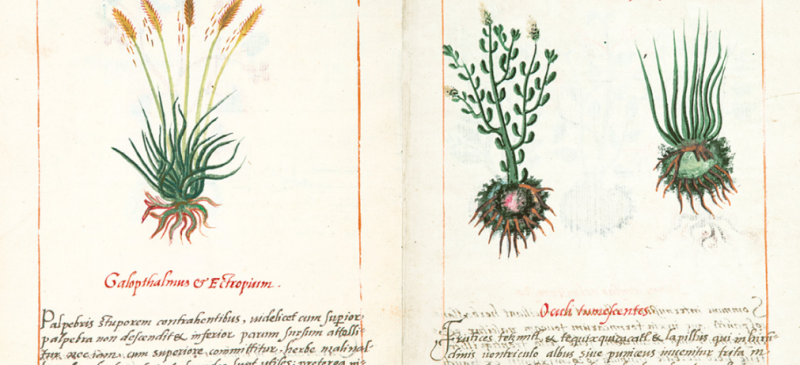 Galopthalmus & Ectropium.
Palpebris stuporem contrahentibus, uidelicet cum superior
palpebra non descendit & inferior parum sursum attolli
tur nec iam cum superiore committitur, herbe
Oculi tumescentes
Frutices tetzmitl, & tequixquizacatl & lapillus qui in hirun
dinis uentriculo albus siue puniceus inuenitur trita in